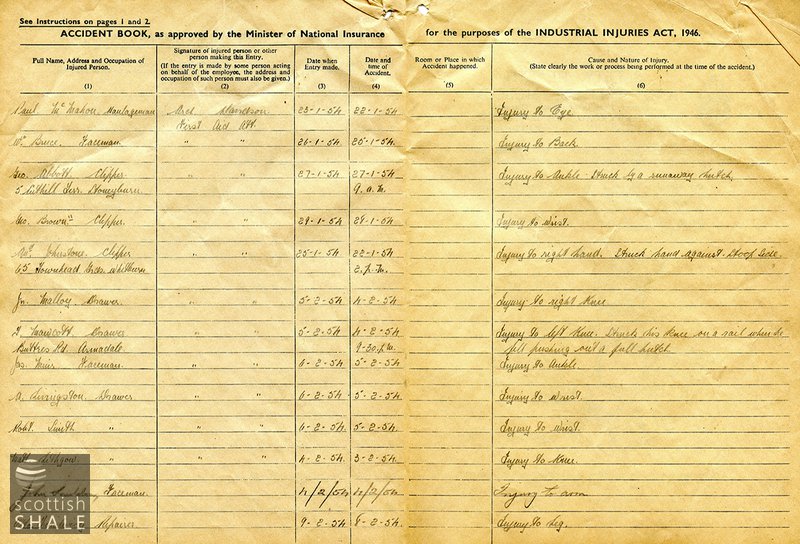 See Instructions on pages 1 and 2.
ACCIDENT BOOK, as approved by the Minister of National Insurance for the purposes of the INDUSTRIAL INJURIES ACT, 1946.
Full Name, Address and Occupation of Injured Person.
(1)
Signature of injured person or other person making this Entry.
(If the entry is made by some person acting on behalf of the employee, the address and occupation of such person must also be given.)
(2)
Date when Entry made.
(3)
Date and time of Accident.
(4)
Room or Place in which Accident happened.
(5)
Cause and Nature of Injury.
(State clearly the work or process being performed at the time of the accident.)
(6)
Paul McMahon, Haulageman Arch. First Aid Att. 23-1-54 22-1-54 Injury to Eye.
Wm Bruce. Faceman. " " 26-1-54 25-1-54 Injury to Back.
Geo. Abbott, Clipper " " 27-1-54 27-1-54 Injury to Ankle. Struck by a runaway hutch.
5 Cuthill Terr. Stoneyburn. 9. a.m.
Geo. Brown. Clipper. " " 29-1-54 29-1-54 Injury to wrist.
Wm Johnstone. Clipper " " 25-1-54 22-1-54 Injury to right hand. Struck hand against Stoop side.
65 Townhead Whitburn 2. p.m.
Jn. Malloy. Drawer. " " 5-2-54 4-2-54 Injury to right Knee.
Drawer " " 5-2-54 4-2-54 Injury to left Knee. Struck his Knee on a rail when he
Buttries Rd. Armadale. 9-30.p.m. fell pushing out a full hutch.
Jas. Muir Faceman. " " 6-2-54 5-2-54 Injury to Ankle.
A. Livingston. Drawer " " 6-2-54 5-2-54 Injury to wrist
Robt. Smith " " " 6-2-54 5-2-54. Injury to wrist.
Lithgow. " " " 4-2-54 3-2-54 Injury to Knee.
John Faceman. 4/2/54 4/2/54 Injury to arm
Repairer " " 9-2-54 8-2-54 Injury to Leg.
scottish
SHALE